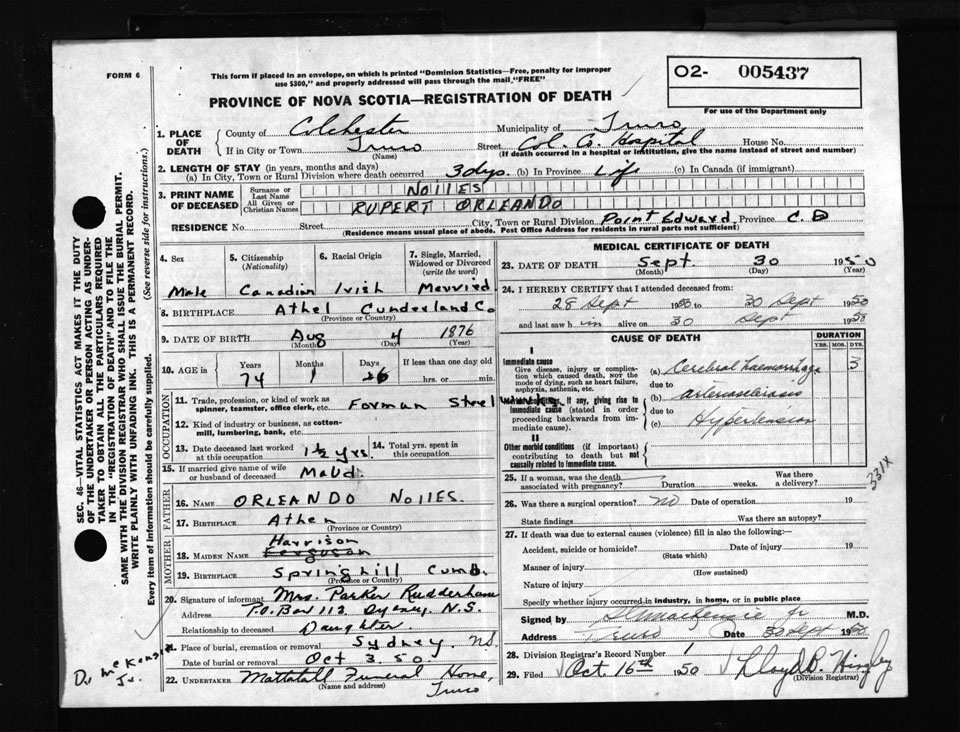 FORM 6
This form if placed in an envelope, on which is printed "Dominion Statistics—Free, penalty for improper
use $300," and properly addressed will pass through the mail "FREE"
PROVINCE OF NOVA SCOTIA—REGISTRATION OF DEATH
O2- 005437
For use of the Department only
SEC. 46—VITAL STATISTICS ACT MAKES IT THE DUTY
OF THE UNDERTAKER OR PERSON ACTING AS UNDER-
TAKER TO OBTAIN ALL THE PARTICULARS REQUIRED
IN THE "REGISTRATION OF DEATH" AND TO FILE THE
SAME WITH THE DIVISION REGISTRAR WHO SHALL ISSUE THE BURIAL PERMIT.
WRITE PLAINLY WITH UNFADING INK. THIS IS A PERMANENT RECORD.
Every item of information should be carefully supplied. (See reverse side for instructions.)
1. PLACE OF DEATH { County of Colchester Municipality of Truro
If in City or Town Truro Street Col. Co. Hospital House No.
(Name) (If death occurred in a hospital or institution, give the name instead of street and number)
2. LENGTH OF STAY (in years, months and days)
(a) In City, Town or Rural Division where death occurred 3 dys. (b) In Province Life (c) In Canada (if immigrant)
3. PRINT NAME OF DECEASED { Surname or Last Name NOIIES
All Given or Christian Names RUPERT ORLEANDO
RESIDENCE No. Street City, Town or Rural Division Point Edward Province C.B
(Residence means usual place of abode. Post Office Address for residents in rural parts not sufficient)
4. Sex
5. Citizenship (Nationality)
6. Racial Origin
7. Single, Married, Widowed or Divorced (write the word)
Male Canadian Irish Married
8. BIRTHPLACE Athol Cumberland Co
(Province or Country)
9. DATE OF BIRTH Aug 4 1876
(Month) (Day) (Year)
10. AGE in { Years Months Days If less than one day old
74 1 26 hrs. or min.
OCCUPATION
11. Trade, profession, or kind of work as
spinner, teamster, office clerk, etc. Forman Steel Works
12. Kind of industry or business, as cotton-
mill, lumbering, bank, etc.
13. Date deceased last worked at this occupation 1½ yrs.
14. Total yrs. spent in this occupation
15. If married give name of wife
or husband of deceased Maud
FATHER
16. NAME ORLEANDO NOIIES.
17. BIRTHPLACE Athen
(Province or Country)
MOTHER
Harrison
18. MAIDEN NAME Ferguson
19. BIRTHPLACE Springhill Cumb.
(Province or Country)
20. Signature of informant Mrs. Parker Rudderham
Address P.O. Box 113 Sydney, N.S.
Relationship to deceased Daughter
21. Place of burial, cremation or removal Sydney, N.S.
Date of burial or removal Oct 3. 50.
22. UNDERTAKER Mattatall Funeral Home,
(Name and address) Truro
Dr. McKenzie
Jr.
MEDICAL CERTIFICATE OF DEATH
23. DATE OF DEATH Sept. 30 1950
(Month) (Day) (Year)
24. I HEREBY CERTIFY that I attended deceased from:
28 Sept 1950 to 30 Sept 1950
and last saw him alive on 30 Sept 1950
CAUSE OF DEATH DURATION
YRS. MOS. DYS.
I
Immediate cause
Give disease, injury or complica-
tion which caused death, NOT the
mode of dying, such as heart failure,
asphyxia, asthenia, etc.
(a) Cerebral haemorrhage 3
due to
(b) arteriosclerosis
due to
(c) Hypertension
Morbid conditions, if any, giving rise to
immediate cause (stated in order
proceeding backwards from im-
mediate cause).
II
Other morbid conditions (if important)
contributing to death but not
causally related to immediate cause.
331X
25. If a woman, was the death
associated with pregnancy? Duration weeks. Was there a delivery?
26. Was there a surgical operation? no Date of operation 19
State findings Was there an autopsy?
27. If death was due to external causes (violence) fill in also the following:—
Accident, suicide or homicide? Date of injury 19
(State which)
Manner of injury
(How sustained)
Nature of injury
Specify whether injury occurred in industry, in home, or in public place
Signed by Jr M.D.
Address Truro Date 30 Sept 1950
28. Division Registrar's Record Number 1
29. Filed Oct. 16th 1950 Lloyd B.
(Division Registrar)